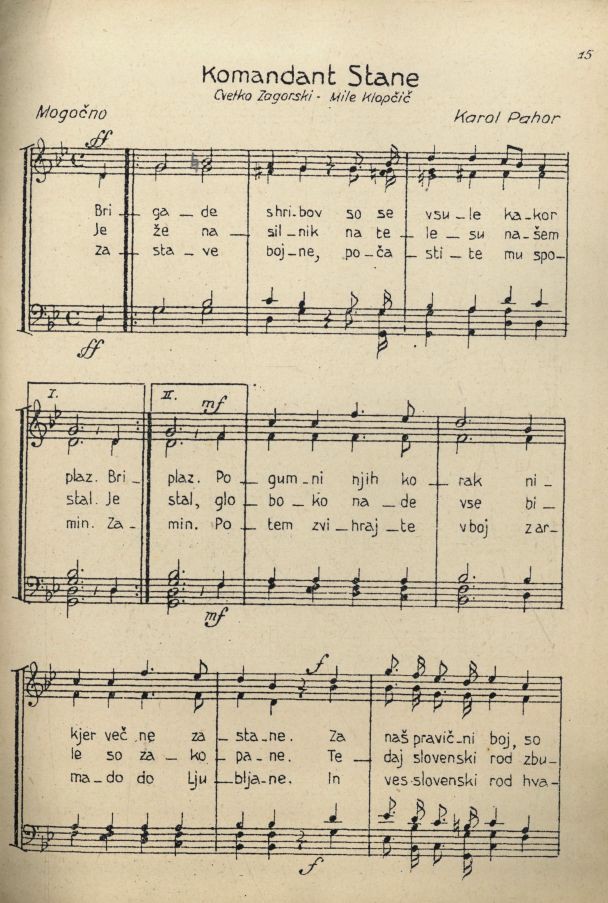 15
Komandant Stane
Cvetko Zagorski - Mile Klopčič
Mogočno
Karol Pahor
ff
Bri _ ga _ de shri.bov so se vsu _ le ka _ kor
Je že na _ sil _ nik na te _ le _ su na _ šem
za _ sta _ ve boj _ ne, po _ ča _ sti _ te mu spo _
ff
I. II. mf
plaz. Bri _ plaz. Po _ gum _ ni njih ko _ rak ni _
stal. Je stal, glo _ bo _ ko na _ de vse bi _
min. Za _ min. Po _ tem zvi _ hraj _ te v boj zar _
mf
f
kjer več _ ne za _ sta _ ne. Za naš pravič _ ni boj, so
le so za _ ko _ pa _ ne. Te _ daj slovenski rod zbu _
ma _ do do Lju _ blja _ ne. In ves slovenski rod hva _
f